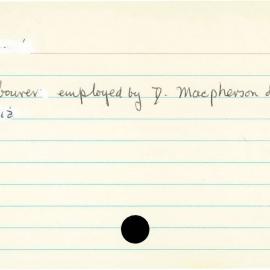 bourer employed by D. Macpherson &